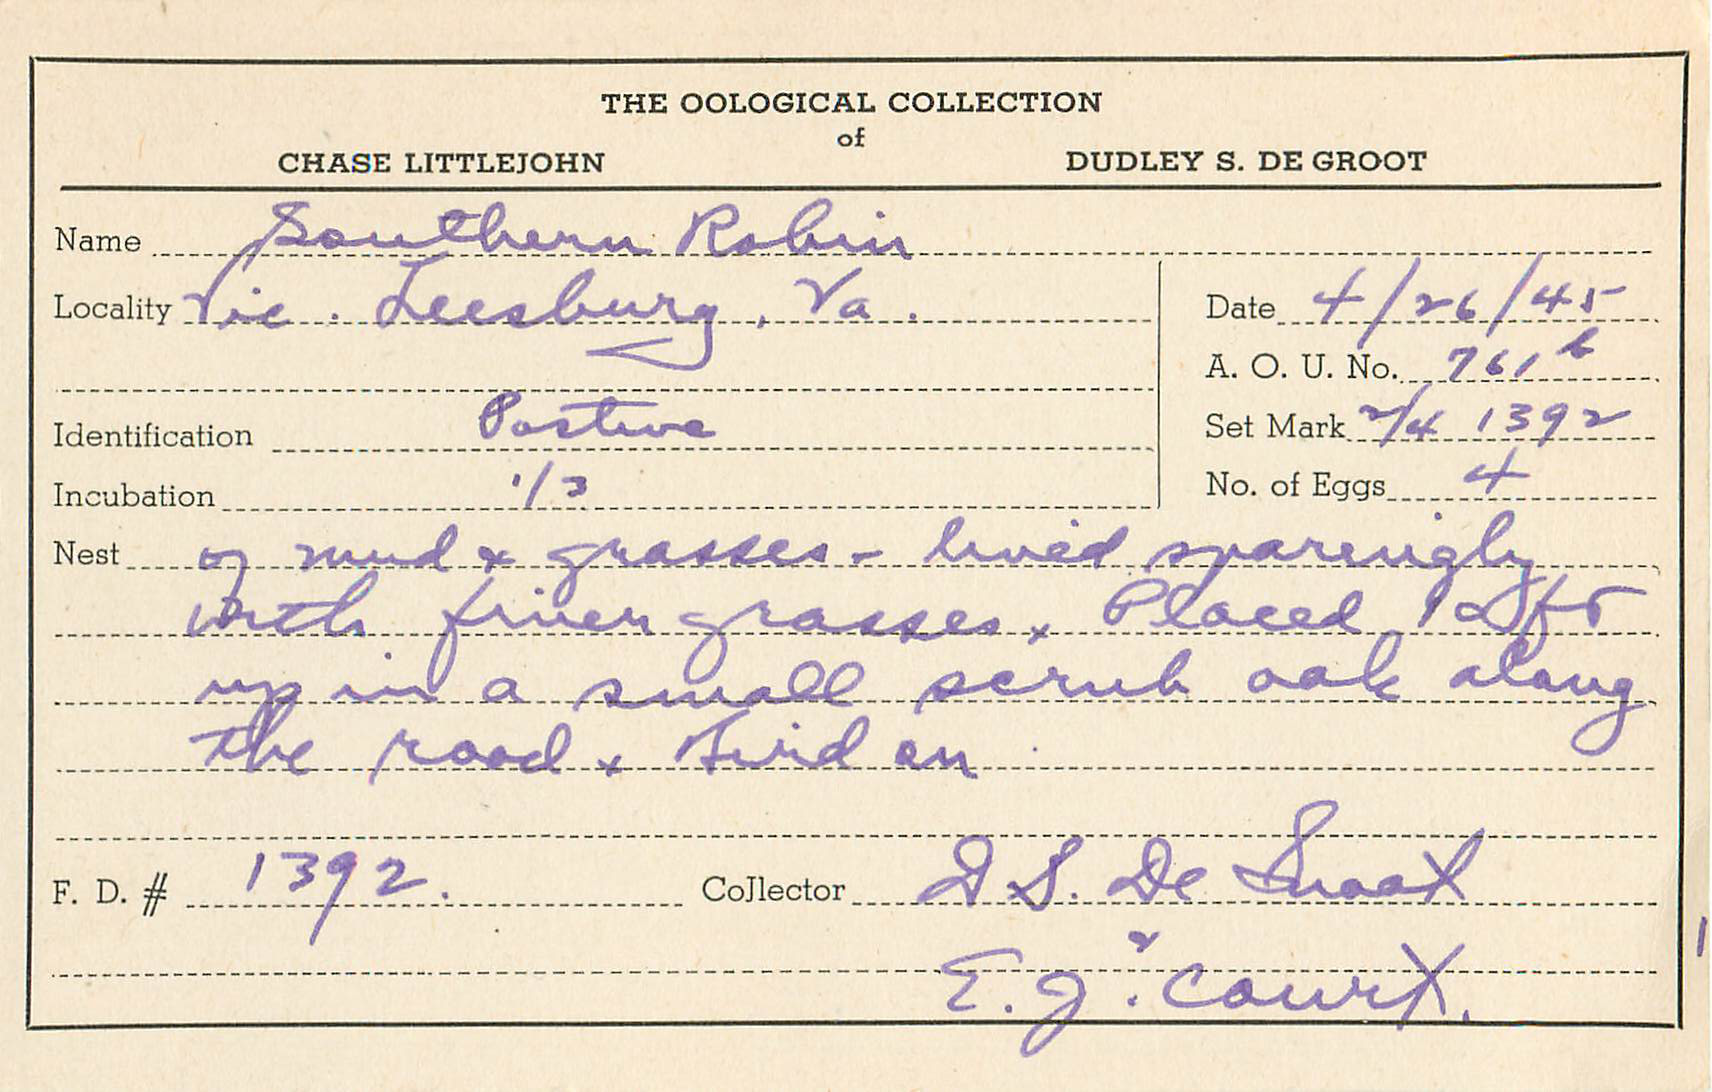 THE OOLOGICAL COLLECTION
of
CHASE LITTLEJOHN DUDLEY S. DE GROOT
Name Southern Robin
Locality Vic. Leesburg, Va.
Date 4/26/45
A. O. U. No. 761b
Identification Postive
Set Mark 2/4 1392
Incubation 1/3
No. of Eggs 4
Nest of mud + grasses - lined sparingly
with finer grasses. Placed 12 ft
up in a small scrub oak along
the road. Bird on
F. D. # 1392. Collector D S. De Groot
E. J. Court.